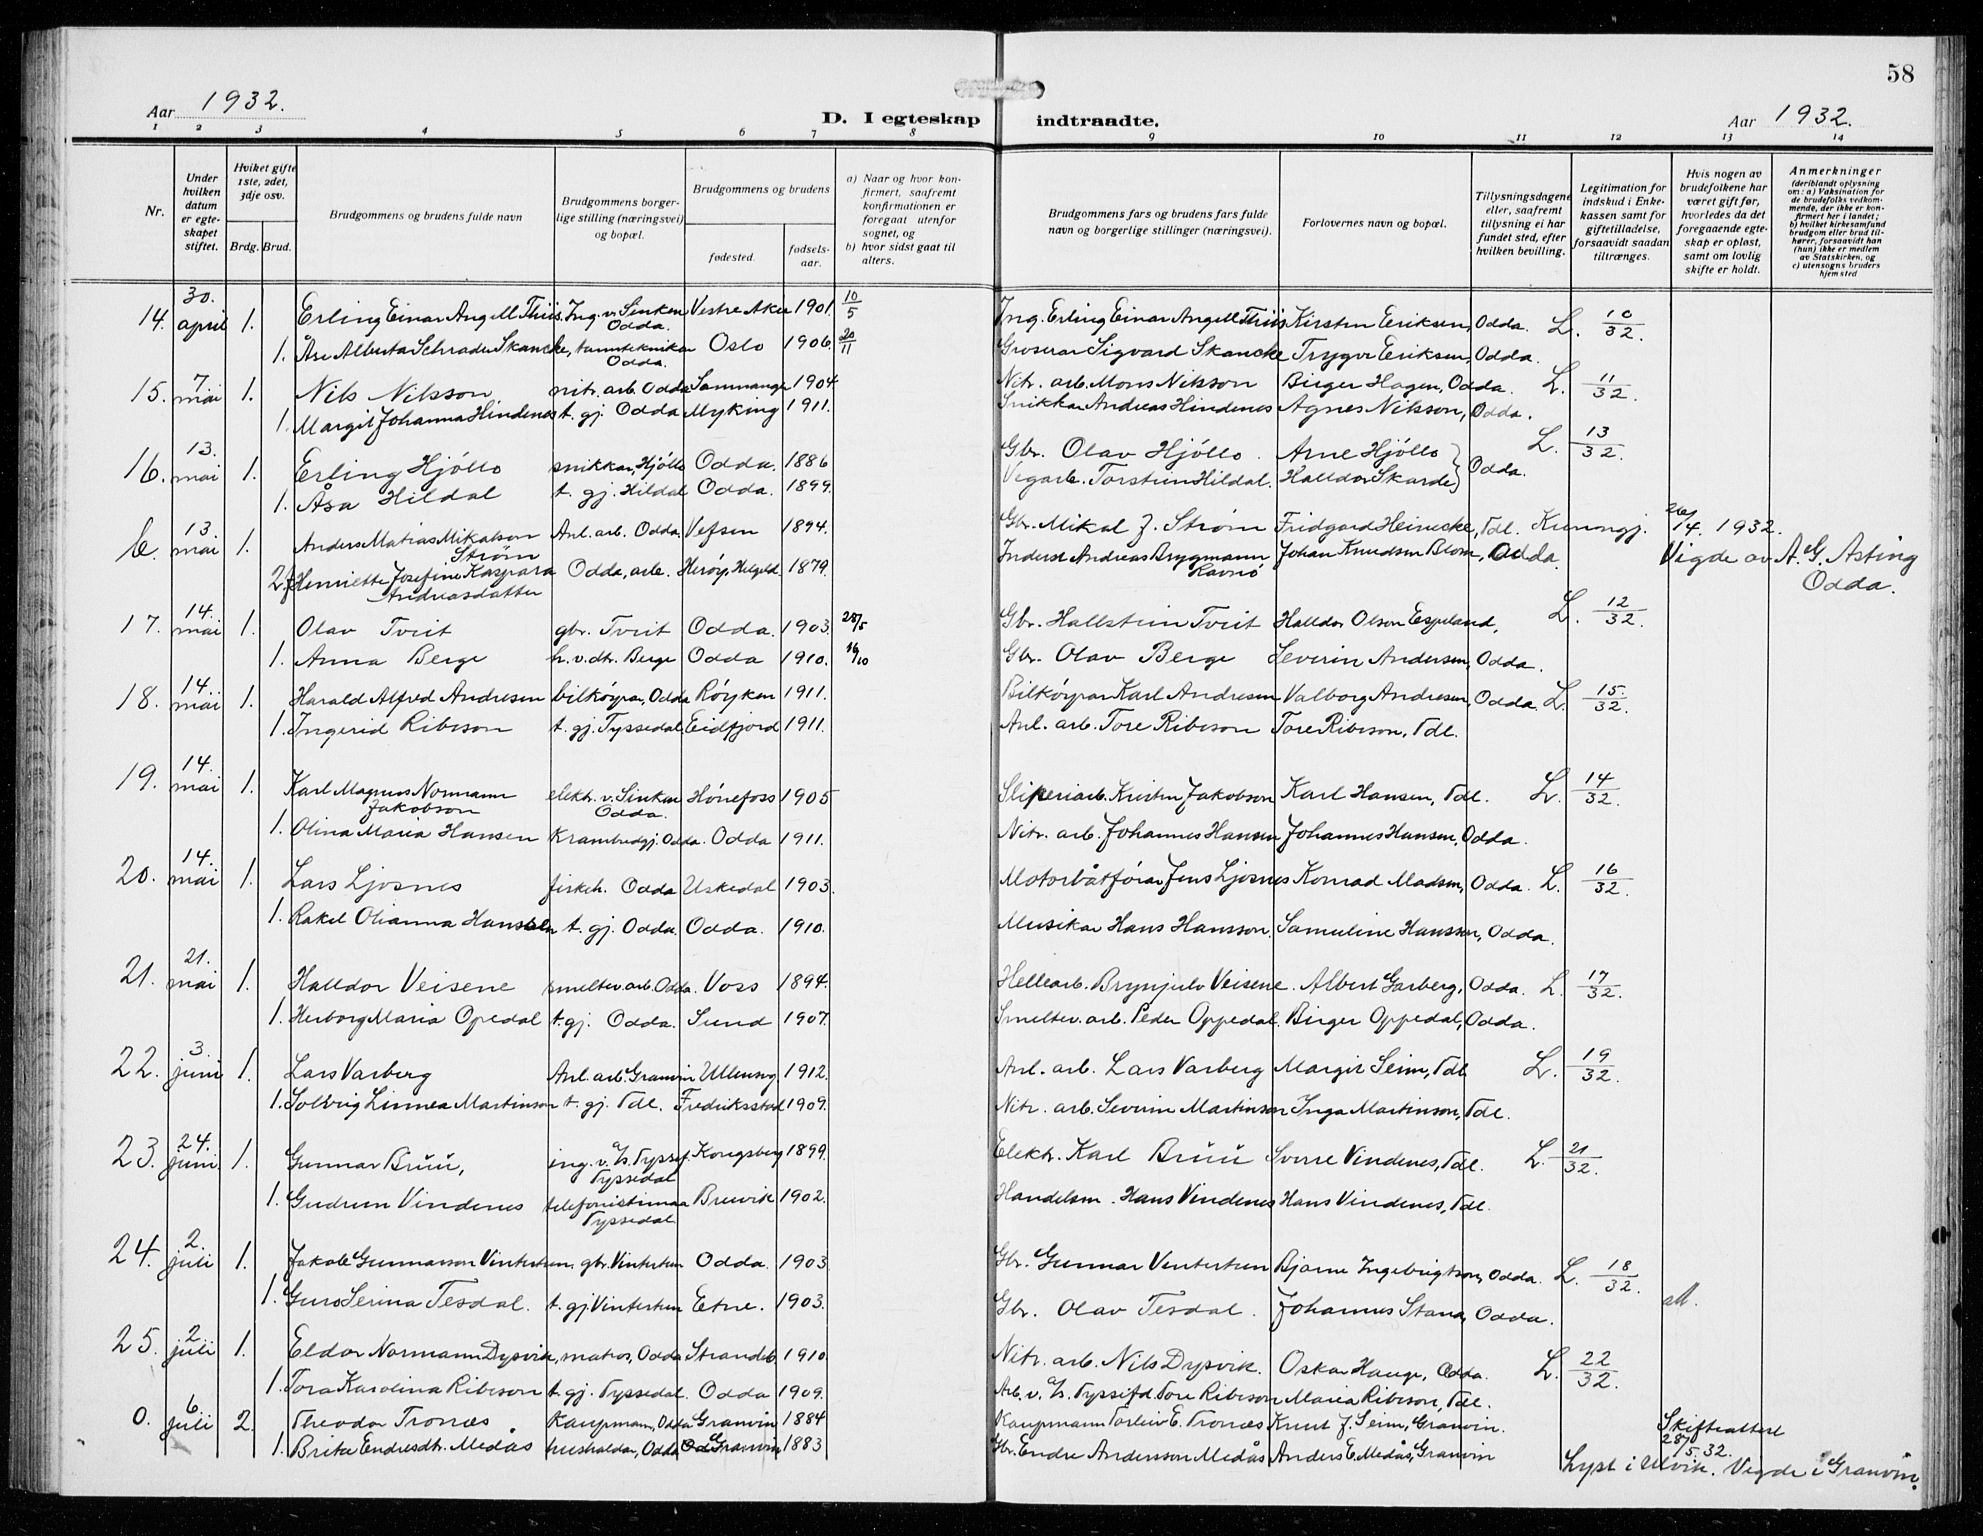 58
Aar 1932.
D. I egteskap indtraadte.
Aar 1932.
1 2 3 4 5 6 7 8 9 10 11 12 13 14
Nr.
Under hvilken datum er egteskapet stiftet.
Hviket gifte 1ste, 2det, 3dje osv.
Brdg. Brud.
Brudgommens og brudens fulde navn
Brudgommens borgerlige stilling (næringsvei) og bopæl.
Brudgommens og brudens
fødested. fødselsaar.
a) Naar og hvor konfirmert, saafremt konfirmationen er foregaat utenfor sognet, og
b) hvor sidst gaat til alters.
Brudgommens fars og brudens fars fulde navn og borgerlige stillinger (næringsvei).
Forlovernes navn og bopæl.
Tillysningsdagene eller, saafremt tillysning ei har fundet sted, efter hvilken bevilling.
Legitimation for indskud i Enkekassen samt for giftetilladelse, forsaavidt saadan tiltrænges.
Hvis nogen av brudefolkene har været gift før, hvorledes da det foregaaende egteskap er opløst, samt om lovlig skifte er holdt.
Anmerkninger
(deriblandt oplysning om: a) Vaksination for de brudefolks vedkommende, der ikke er konfirmert her i landet; b) hvilket kirkesamfund brudgom eller brud tilhører, forsaavidt han (hun) ikke er medlem av Statskirken, og c) utensogns bruders hjemsted
14. 30. april 1. Erling Einar Angell Thiis, Ing. v. Sinken Odda. Vestre Aker 1901. 10/5 Ing. Erling Einar Angell Thiis Kirsten Eriksen, Odda. L. 10/32.
1. Åse Alberta Schrader Skancke, tannteknikar Odda. Oslo 1906. 20/11 Groserar Sigvard Skancke Trygve Eriksen, Odda.
15. 7. mai 1. Nils Nilsson, nitr. arb. Odda Samnanger 1904. Nitr. arb. Mons Nilsson Birger Hagen, Odda. L. 11/32.
1. Margit Johanna Hindenes t. gj. Odda Myking 1911. Snikkar Andreas Hindenes Agnes Nilsson, Odda.
16. 13. mai 1. Erling Hjøllo snikkar, Hjøllo Odda. 1886 Gbr. Olav Hjøllo. Arne Hjøllo L. 13/32.
1. Åsa Hildal t. gj. Hildal Odda. 1899. Vegarb. Torstein Hildal. Halldor Skarde } Odda.
b. 13. mai 1. Anders Matias Mikalson Strøm Anl. arb. Odda. Vefsen 1894. Gbr. Mikal J. Strøm Fridgard Heinecke, Tdl. Kunngj. 26/4. 1932.
2. f Henriette Josefine Kaspara Andreasdatter Odda, arb. Herøy, Helgeld. 1879. Inderst Andreas Brygmann Ravnø Johan Knudsen Blom, Odda. Vigde av A. G. Asting Odda.
17. 14. mai 1. Olav Tveit gbr. Tveit Odda. 1903. 28/5 Gbr. Hallstein Tveit Halldor Olson Espeland, L. 12/32.
1. Anna Berge h. v. dtr. Berge Odda 1910. 16/10 Gbr. Olav Berge Severin Andersen, Odda.
18. 14. mai 1. Harald Alfred Andresen bilkøyrar, Odda Røyken 1911. Bilkøyrar Karl Andresen Valborg Andresen, Odda. L. 15./32.
1. Ingerid Ribeson t. gj. Tyssedal. Eidfjord 1911. Anl. arb. Tore Ribeson Tore Ribeson, Tdl.
19. 14. mai 1. Karl Magnus Normann Jakobson elektr. v. Sinken Odda. Hønefoss 1905 Sliperiarb. Kristen Jakobson Karl Hansen, Tdl. L. 14/32.
1. Olina Maria Hansen Krambudgj. Odda. Odda 1911. Nitr. arb. Johannes Hansen Johannes Hansen, Odda.
20. 14. mai 1. Lars Ljosnes fiskeh. Odda Uskedal 1903. Motorbåtførar Jens Ljosnes Konrad Madsen, Odda. L. 16/32.
1. Rakel Olianna Hanssen t. gj. Odda. Odda. 1910. Musikar Hans Hansson. Samueline Hanssen, Odda.
21. 21. mai 1. Halldor Veisene smeltev. arb. Odda. Voss 1894. Hellearb. Brynjulv Veisene. Albert Garberg, Odda. L. 17/32.
1. Herborg Maria Opedal t. gj. Odda. Sund 1907. Smeltev. arb. Peder Oppedal. Birger Oppedal, Odda.
22. 3. juni 1. Lars Varberg Anl. arb. Granvin Ullensvg. 1912. Anl. arb. Lars Varberg Margit Seim, Tdl. L. 19/32.
1. Solveig Linnea Martinson t. gj. Tdl. Fredriksstad 1909. Nitr. arb. Severin Martinson Inga Martinson, Tdl.
23. 24. juni 1. Gunnar Bruu, ing. v. A/S. Tyssef. Tyssedal Kongsberg 1899. Elektr. Karl Bruu Sverre Vindenes, Tdl. L. 21/32.
1. Gudrun Vindenes telefonistinna Tyssedal. Brevik 1902. Handelsm. Hans Vindenes Hans Vindenes, Tdl.
24. 2. juli 1. Jakob Gunnarson Vintertun, gbr. Vintertun Odda. 1903 Gbr. Gunnar Vintertun Bjarne Ingebrigtson, Odda. L. 18/32.
1. Guro Serina Tesdal. t. gj Vintertun Etne. 1903. Gbr. Olav Tesdal. Johannes Stana, Odda.
25. 2. juli 1. Eldor Normann Dysvik, matros, Odda Strandb. 1910. Nitr. arb. Nils Dysvik. Oskar Hauge, Odda. L. 22/32.
1. Tora Karolina Ribeson t. gj. Tyssedal. Odda 1909. Arb. v. A/S. Tyssefd. Tore Ribeson Maria Ribeson, Tdl.
0. 6. juli 2. Theodor Tronæs Kaupmann, Odda Granvin 1884 Kaupmann Torleiv E. Tronæs Knut J. Seim, Granvin. Skifteattest 28/5. 32.
1. Brita Endresdtr. Medås hushaldar, Odda Granvin 1883 Gbr. Endre Andersson Medås Anders E. Medås, Granvin
Lyst i Ulvik. Vigde i Granvin.